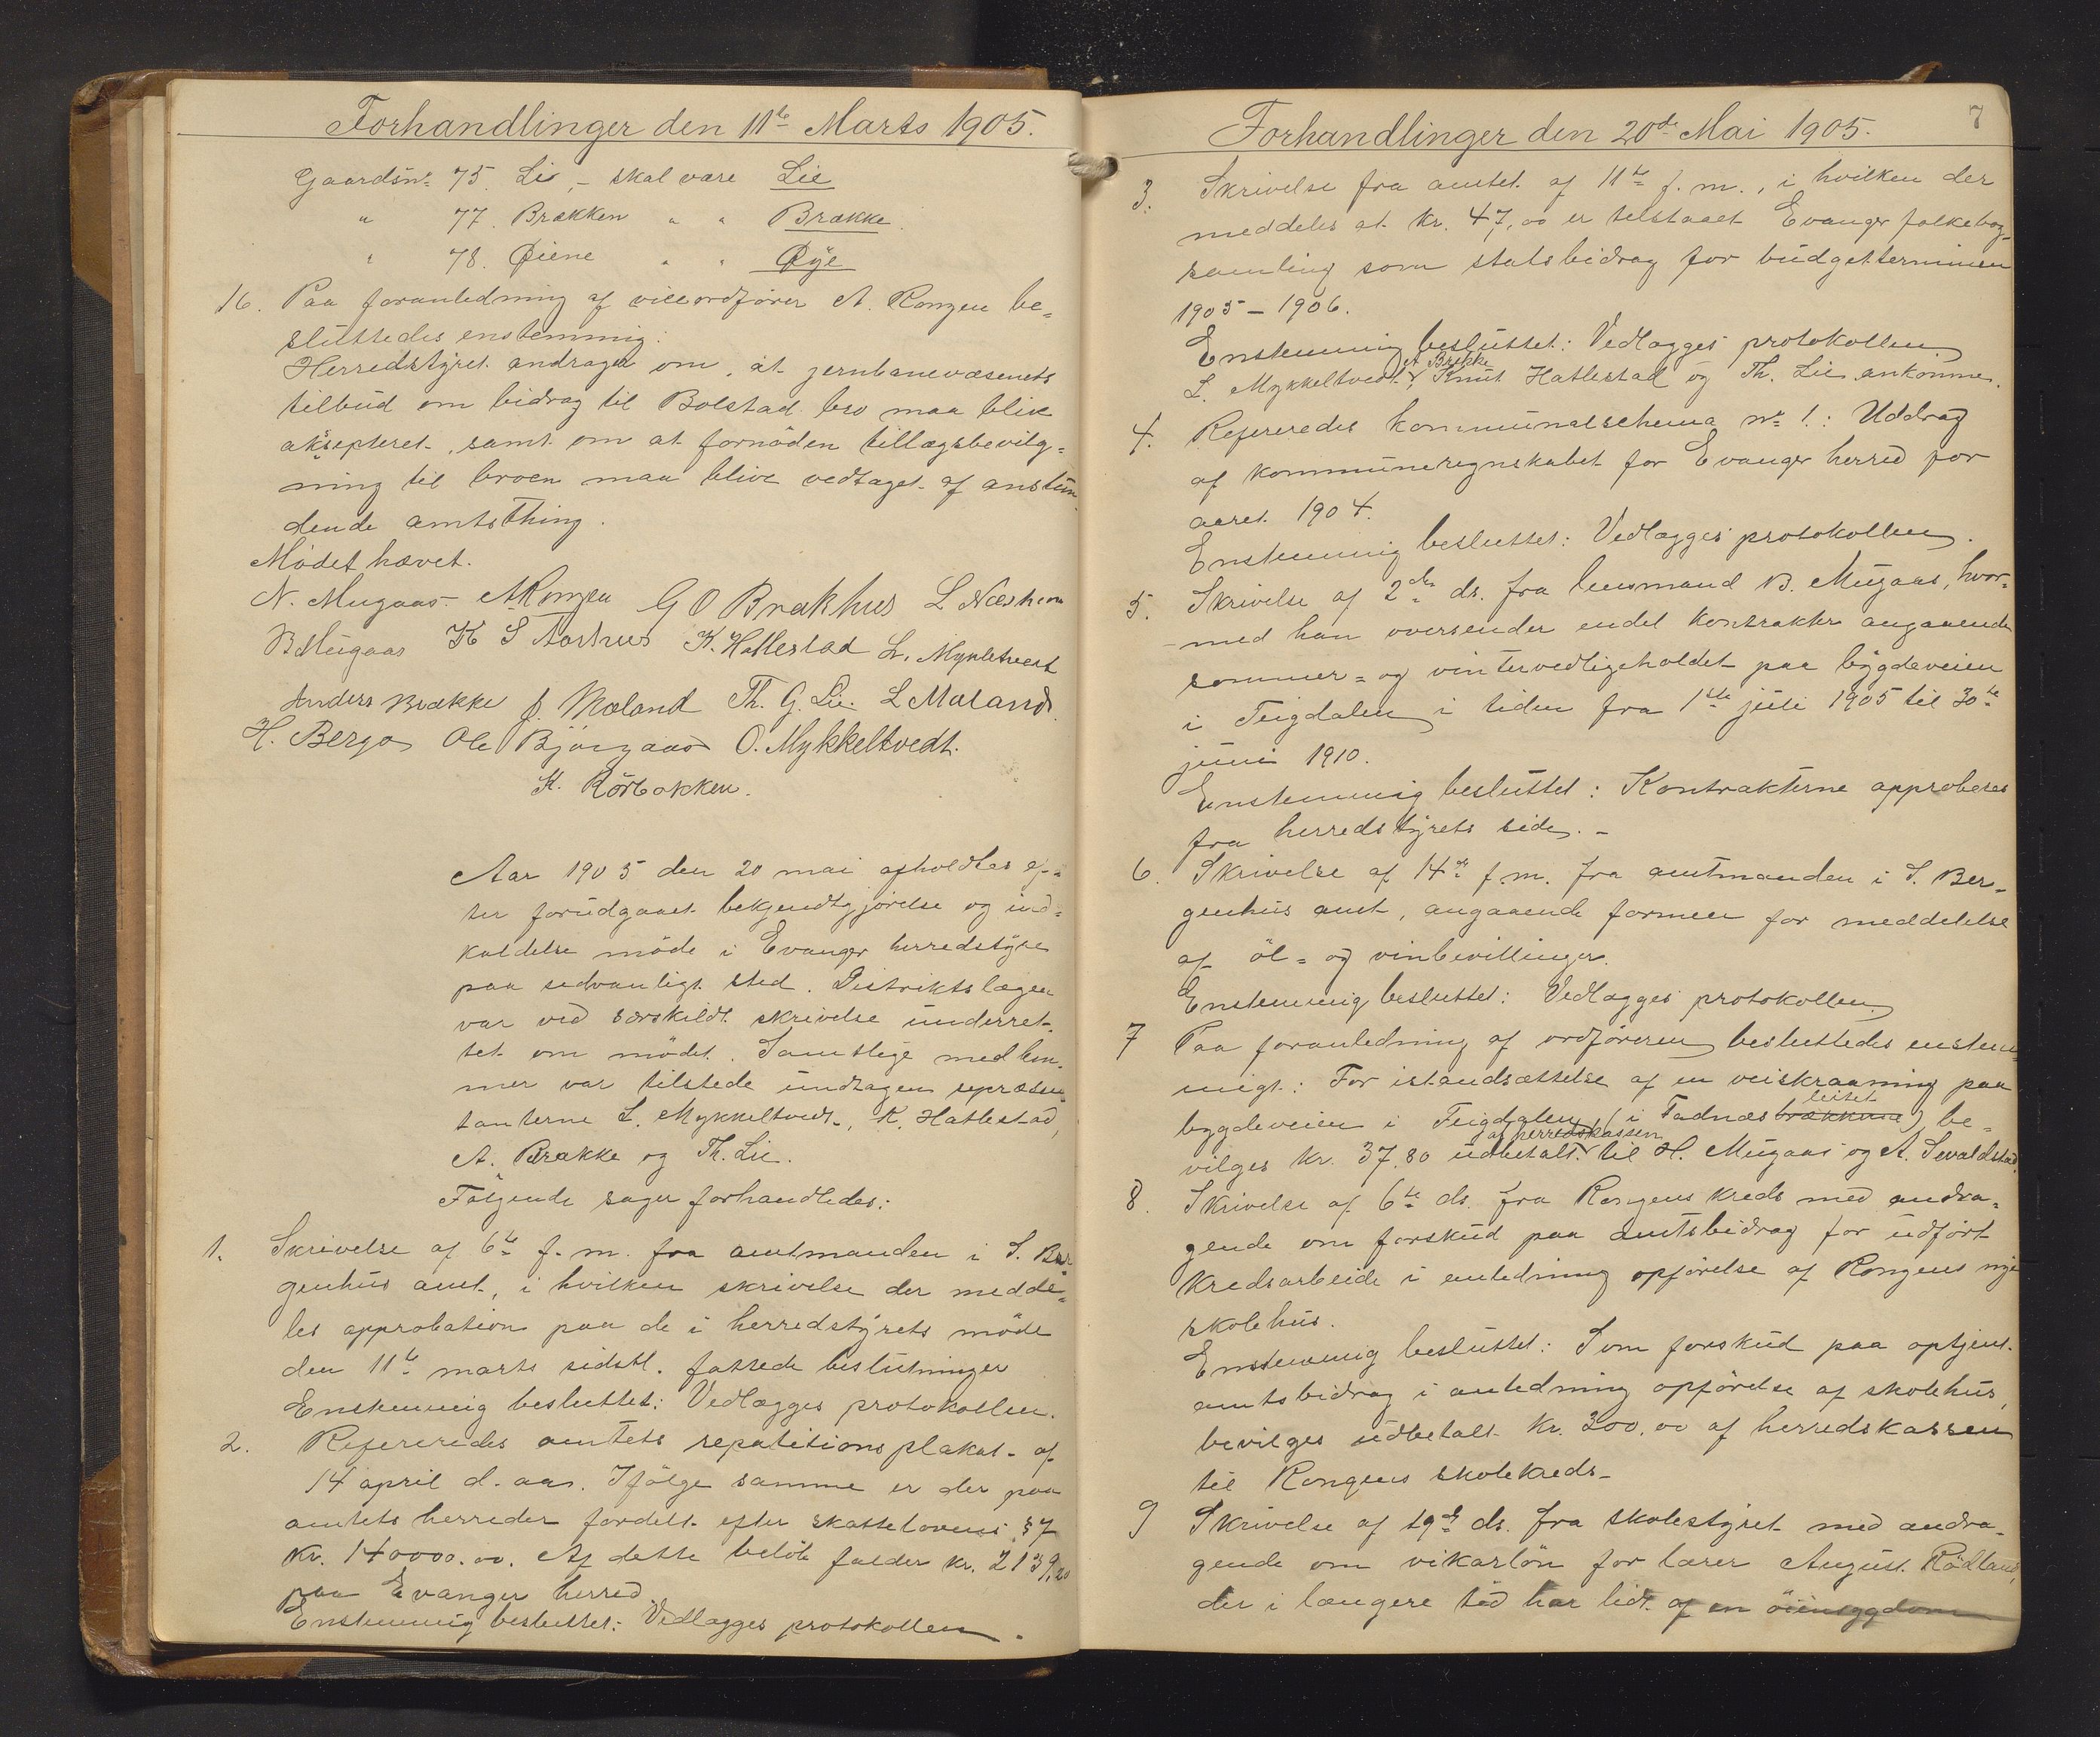 Forhandlinger den 11te Marts 1905.
Gaardsnr 75. Li, – skal være Lie
" 77. Brækken " " Brække
" 78. Øiene " " Øye
16. Paa foranledning af viceordfører A. Rongen be=
sluttedes enstemmig:
Herredstyret andrager om, at jernbanevæsenets
tilbud om bidrag til Bolstad bro maa blive
aksepteret, samt om at fornöden tillægsbevilg=
ning til broen maa blive vedtaget af anstun
dende amtsthing.
Mödet hævet.
N. Mugaas A Rongen G O Brakhus L Næsheim
B Mugaas K S Aarhus K. Hatlestad L. Mykletvedt
Anders Brække J. Mæland Th. G. Lie. L Mæland.
H. Bergo Ole Björgaas O. Mykkeltvedt.
K. Rörbakken.
Aar 1905 den 20 mai afholdtes ef=
ter forudgaaet bekjendtgjörelse og ind=
kaldelse möde i Evanger herredstyre
paa sedvanligt sted. Distriktslægen
var ved særskildt skrivelse underret=
tet om mödet. Samtlige medlem=
mer var tilstede undtagen repræsen=
tanterne L. Mykkeltvedt, K. Hatlestad,
A. Brække og Th. Lie.
Fölgende sager forhandledes:
1. Skrivelse af 6te f. m. fra amtmanden i S. Ber=
genhus amt, i hvilken skrivelse der medde=
les approbation paa de i herredstyrets möde
den 11te marts sidstl. fattede beslutninger
Enstemmig besluttet: Vedlægges protokollen.
2. Refereredes amtets repatitionsplakat af
14 april d. aar. Ifölge samme er der paa
amtets herreder fordelt efter skattelovens § 7
Kr. 140000.00. Af dette belöb falder kr. 2139,20
paa Evanger herred.
Enstemmig besluttet: Vedlægges protokollen.
7
Forhandlinger den 20de Mai 1905.
3. Skrivelse fra amtet af 11te f. m., i hvilken der
meddeles at kr. 47,00 er tilstaaet Evanger folkebog=
samling som statsbidrag for budgetterminen
1905 – 1906.
Enstemmig besluttet: Vedlægges protokollen.
A Brekke
L. Mykkeltvedt, Knut Hatlestad og Th. Lie ankomne.
4. Refereredes kommunalschema nr 1.: Uddrag
af kommuneregnskabet for Evanger herred for
aaret 1904.
Enstemmig besluttet: Vedlægges protokollen.
5. Skrivelse af 2den ds. fra lensmand B. Mugaas, hvor=
med han oversender endel kontrakter angaaende
sommer= og vintervedligeholdet paa bygdeveien
i Teigdalen i tiden fra 1ste juli 1905 til 30te
juni 1910.
Enstemmig besluttet: Kontrakterne approberes
fra herredstyrets side. –
6. Skrivelse af 14de f. m. fra amtmanden i S. Ber=
genhus amt, angaaende formen for meddelelse
af öl= og vinbevillinger.
Enstemmig besluttet: Vedlægges protokollen.
7 Paa foranledning af ordföreren besluttedes enstem=
migt: For istandsættelse af en veiskraaning paa
leitet
bygdeveien i Teigdalen (i Fadnæs brækkene) be=
af herredskassen
vilges kr. 37.80 udbetalt til H. Mugaas og A. Sevaldstad.
8. Skrivelse af 6te ds. fra Rongens kreds med andra=
gende om forskud paa amtsbidrag for udfört
kredsarbeide i anledning opförelse af Rongens nye
skolehus.
Enstemmig besluttet: Som forskud paa optjent
amtsbidrag i anledning opförelse af skolehus,
bevilges udbetalt kr. 300.00 af herredskassen
til Rongens skolekreds –
9 Skrivelse af 19de ds. fra skolestyret med andra=
gende om vikarlön for lærer August Rödland,
der i længere tid har lidt af en öiensygdom